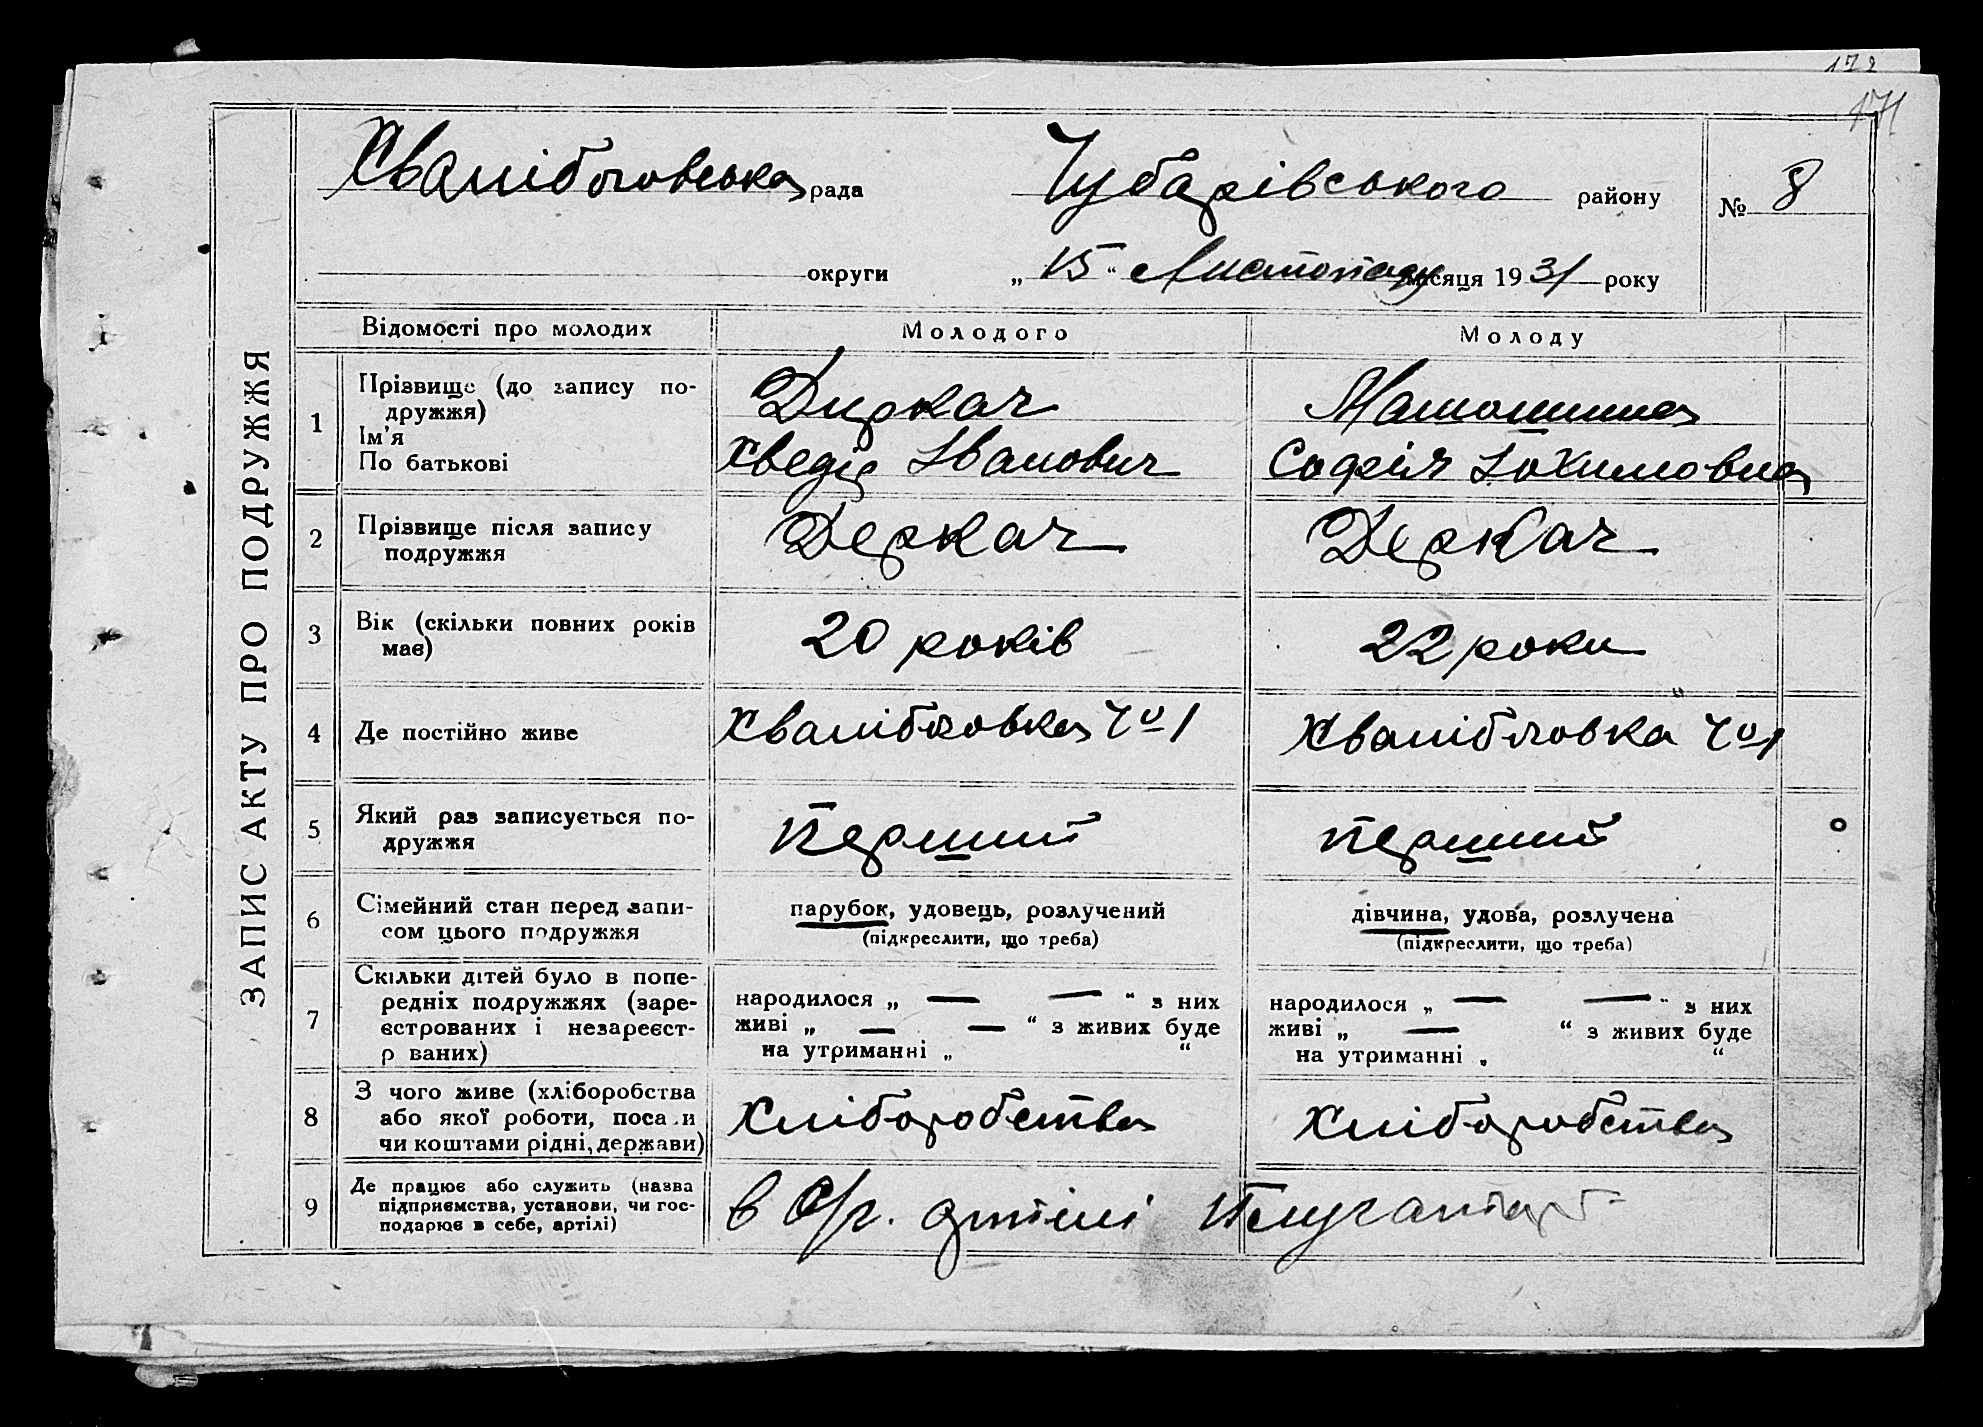 171
Хвалібоговська рада Чубарівського району № 8
округи „ 15 “ Листопаду місяця 1931 року
ЗАПИС АКТУ ПРО ПОДРУЖЖЯ
Відомості про молодих Молодого Молоду
1 Прізвище (до запису по-
дружжя) Диркач
Ім'я
По батькові Хведір Іванович Софія Іохимовна
2 Прізвище після запису
подружжя Деркач Деркач
3 Вік (скільки повних років
має) 20 років 22 роки
4 Де постійно живе Хвалібоговка Ч 1 Хвалібоговка Ч 1
5 Який раз записується по-
дружжя Перший перший
6 Сімейний стан перед запи-
сом цього подружжя
парубок, удовець, розлучений
(підкреслити, що треба)
дівчина, удова, розлучена
(підкреслити, що треба)
7 Скільки дітей було в попе-
редніх подружжях (заре-
єстрованих і незареєст-
р ваних)
народилося „ — — “ з них
живі „ — — “ з живих буде
на утриманні „ “
народилося „ — — “ з них
живі „ — “ з живих буде
на утриманні „ “
8 З чого живе (хліборобства
або якої роботи, поса и
чи коштами рідні, держави)
Хліборобства Хліборобства
9 Де працює або служить (назва
підприємства, установи, чи гос-
подарює в себе, артілі)
в С/г. артілі